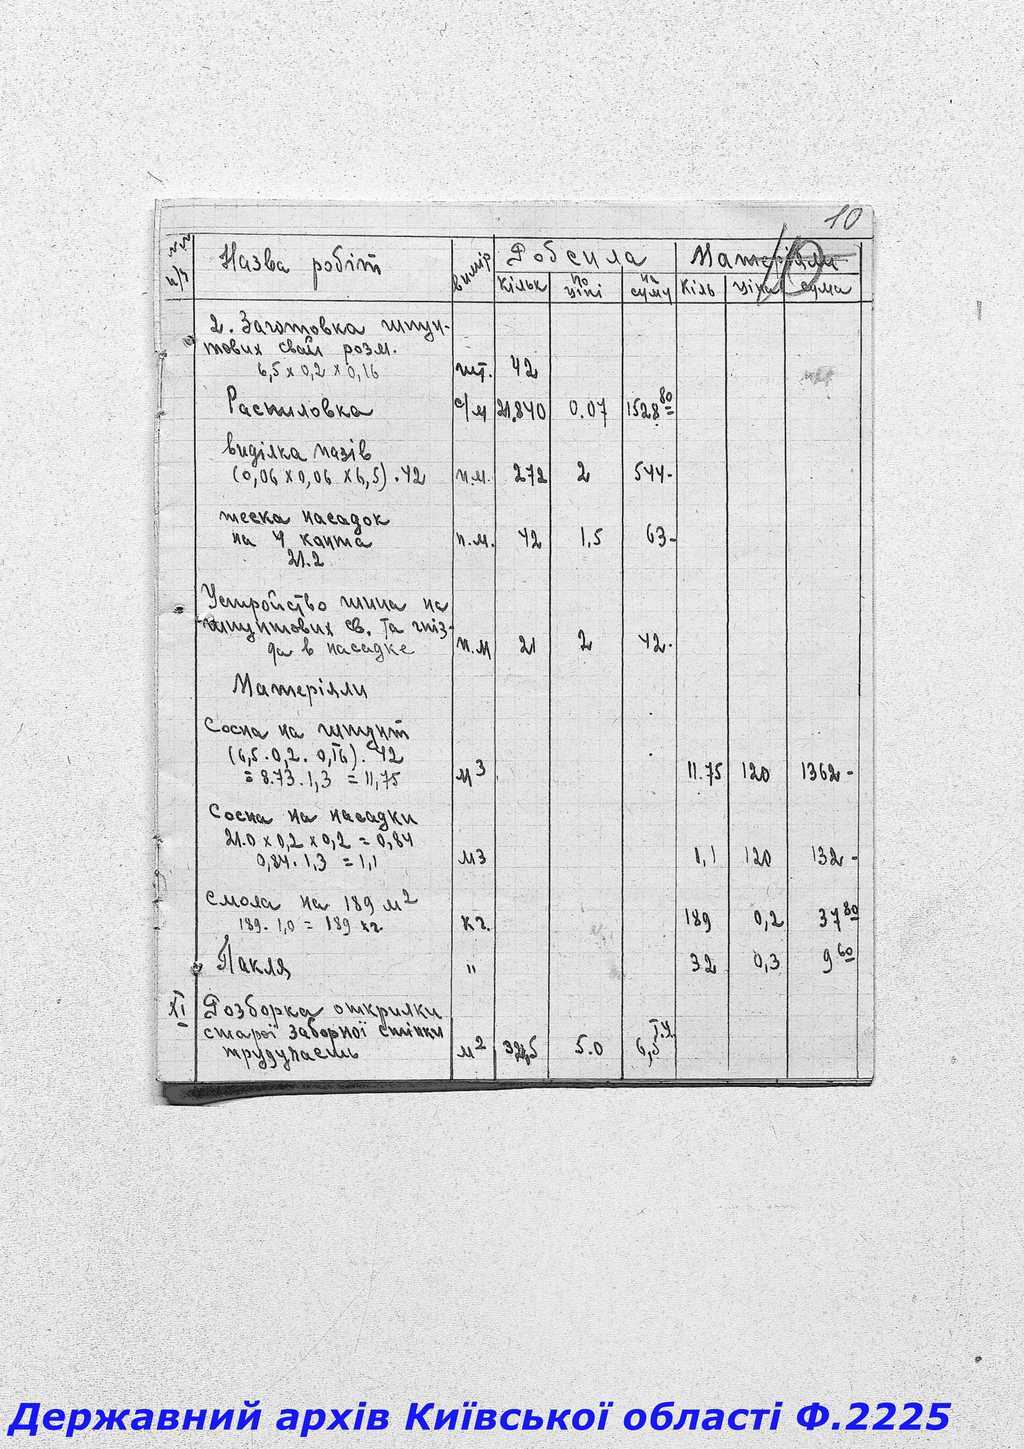 10
№№ п/ч Назва робіт вимір Робсила Матеріяли
кільк по ціні на суму Кіль ціна сума
2. Заготовка шпун-
тових свай розм.
6,5 x 0,2 x 0,16 шт. 42
Распиловка с/м 21.840 0.07 1528 80
виділка пазів
(0,06 x 0,06 x 6,5) . 42 п.м. 272 2 544-
теска насадок
на 4 канта п.м. 42 1,5 63-
21.2
Устройство шипа на
шпунтових св. та гніз-
да в насадке п.м 21 2 42.
Матеріяли
Сосна на шпунт
(6,5 . 0,2 . 0,16) . 42
= 8.73 . 1,3 = 11,75 м3 11.75 120 1362-
Сосна на насадки
21.0 x 0,2 x 0,2 = 0,84
0,84 . 1,3 = 1,1 м3 1,1 120 132-
Смола на 189 м2
189 . 1,0 = 189 кг. кг. 189 0,2 37 80
Пакля " 32 0,3 9 60
XI Розборка открилки
старої заборної стінки
трудучасть м2 5.0
Державний архів Київської області Ф.2225